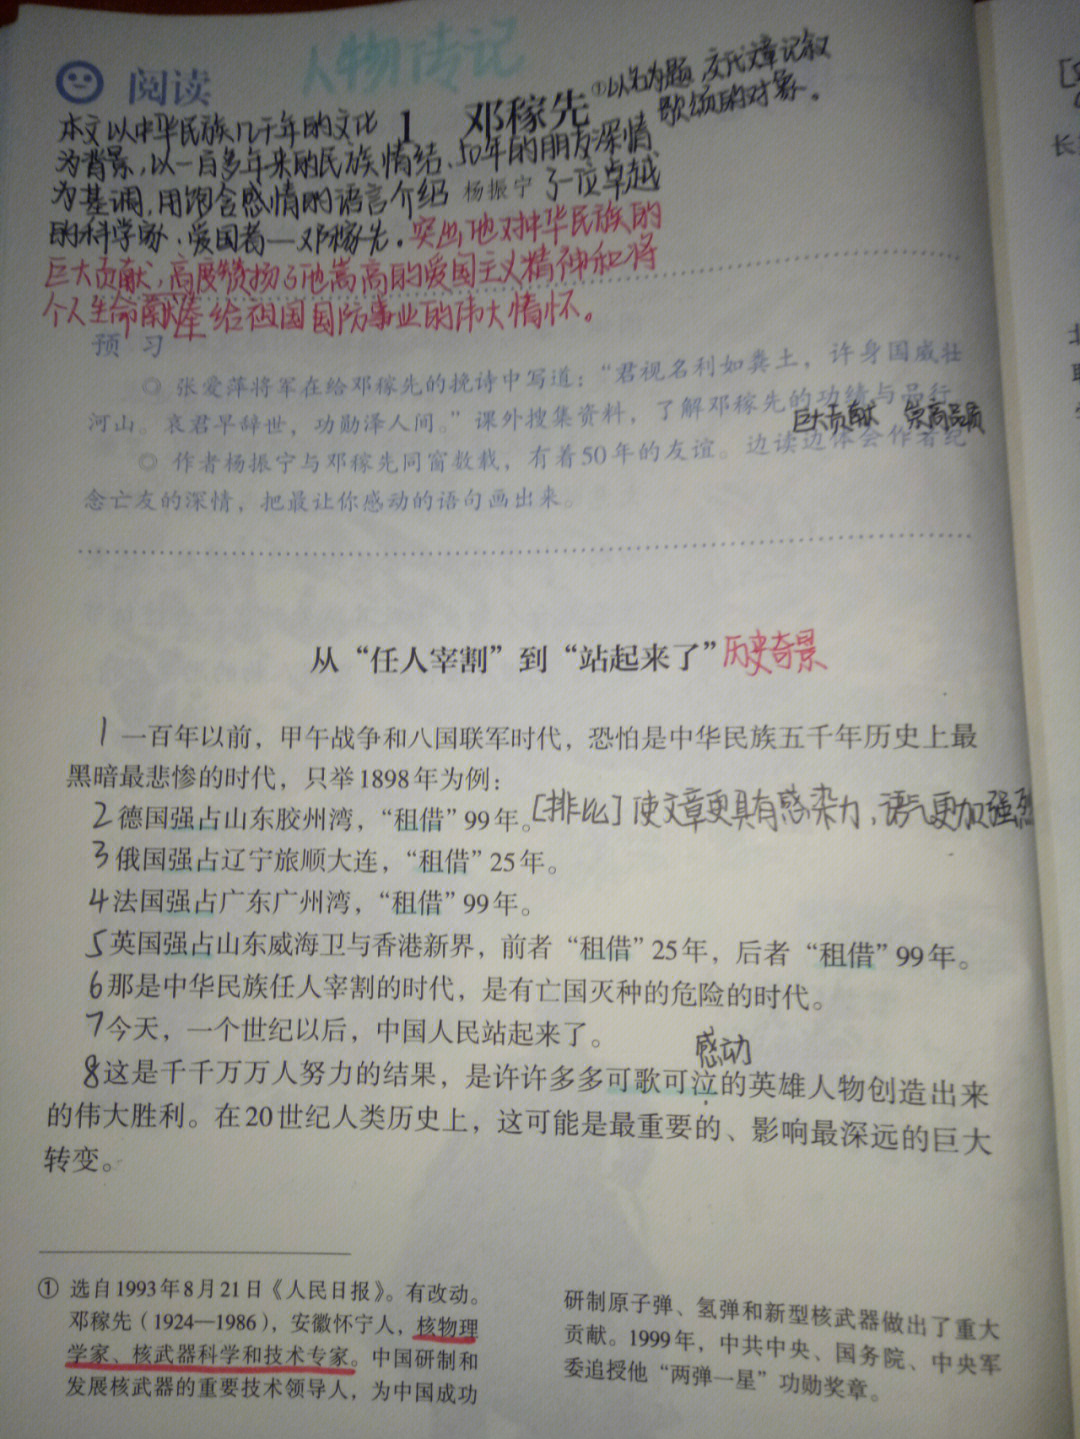 人物传记
阅读
1 邓稼先
①以名为题,交代文章记叙
歌颂的对象。
杨振宁
本文以中华民族几千年的文化
为背景,以一百多年来的民族情结、50年的朋友深情
为基调,用饱含感情的语言介绍了一位卓越
的科学家、爱国者—邓稼先。突出他对中华民族的
巨大贡献,高度赞扬了他嵩高的爱国主义精神和将
个人生命献奉给祖国国防事业的伟大情怀。
预习
◎ 张爱萍将军在给邓稼先的挽诗中写道:“君视名利如粪土,许身国威壮
河山。哀君早辞世,功勋泽人间。”课外搜集资料,了解邓稼先的功绩与品行。
巨大贡献 崇高品质
◎ 作者杨振宁与邓稼先同窗数载,有着50年的友谊。边读边体会作者纪
念亡友的深情,把最让你感动的语句画出来。
从“任人宰割”到“站起来了” 历史奇景
1 一百年以前,甲午战争和八国联军时代,恐怕是中华民族五千年历史上最
黑暗最悲惨的时代,只举1898年为例:
2 德国强占山东胶州湾,“租借”99年。[排比]使文章更具有感染力,语气更加强烈
3 俄国强占辽宁旅顺大连,“租借”25年。
4 法国强占广东广州湾,“租借”99年。
5 英国强占山东威海卫与香港新界,前者“租借”25年,后者“租借”99年。
6 那是中华民族任人宰割的时代,是有亡国灭种的危险的时代。
7 今天,一个世纪以后,中国人民站起来了。
感动
8 这是千千万万人努力的结果,是许许多多可歌可泣的英雄人物创造出来
的伟大胜利。在20世纪人类历史上,这可能是最重要的、影响最深远的巨大
转变。
① 选自1993年8月21日《人民日报》。有改动。
邓稼先(1924—1986),安徽怀宁人,核物理
学家、核武器科学和技术专家。中国研制和
发展核武器的重要技术领导人,为中国成功
研制原子弹、氢弹和新型核武器做出了重大
贡献。1999年,中共中央、国务院、中央军
委追授他“两弹一星”功勋奖章。
长